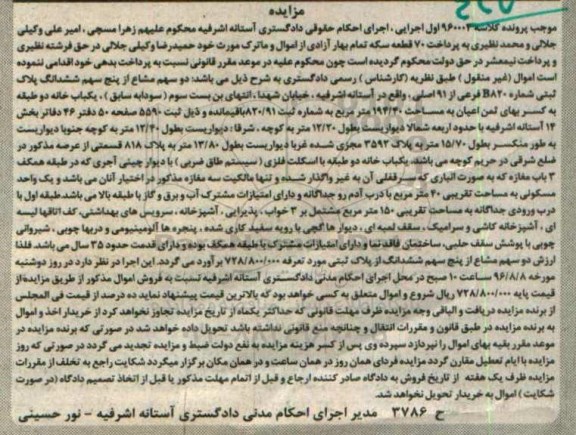 مزایده
موجب پرونده کلاسه ۹۶۰۰۰۳ اول اجرایی، اجرای احکام حقوقی دادگستری آستانه اشرفیه محکوم علیهم زهرا مسچی، امیر علی وکیلی
جلالی و محمد نظیری به پرداخت ۷۰ قطعه سکه تمام بهار آزادی از اموال و ماترک مورث خود حمیدرضا وکیلی جلالی در حق فرشته نظیری
و پرداخت نیمعشر در حق دولت محکوم گردیده است چون محکوم علیه در موعد مقرر قانونی نسبت به پرداخت بدهی خود اقدامی ننموده
است اموال (غیر منقول) طبق نظریه (کارشناس) رسمی دادگستری به شرح ذیل می باشد: دو سهم مشاع از پنج سهم ششدانگ پلاک
ثبتی شماره B۸۲۰ فرعی از ۹۱ اصلی، واقع در آستانه اشرفیه، خیابان شهدا، انتهای بن بست سوم (سودابه سابق)، یکباب خانه دو طبقه
به کسر بهای ثمن اعیان به مساحت ۱۹۳/۴۰ متر مربع به شماره ثبت ۸۳۰/۹۱ باقیمانده و ذیل ثبت ۵۵۹۰ صفحه ۵۰ دفتر ۴۶ دفاتر بخش
۱۴ آستانه اشرفیه با حدود اربعه شمالا دیواریست بطول ۱۲/۲۰ متر به کوچه، شرقا: دیواریست بطول ۱۲/۴۰ متر به کوچه جنوبا دیواریست
به طور منکسر بطول ۱۵/۷۰ متر به پلاک ۳۵۹۲ مجزی شده غربا دیواریست بطول ۱۳/۸۰ متر به پلاک ۸۱۸ قسمتی از عرصه مذکور در
ضلع شرقی در حریم کوچه می باشد. یکباب خانه دو طبقه با اسکلت فلزی (سیستم طاق ضربی) با دیوار چینی آجری که در طبقه همکف
۳ باب مغازه که به صورت انباری که سرقفلی آن به غیر واگذار شده و تنها مالکیت سه مغازه مذکور در اختیار آنان می باشد و یک واحد
مسکونی به مساحت تقریبی ۴۰ متر مربع با درب آدم رو جداگانه و دارای امتیازات مشترک آب و برق و گاز با طبقه بالا می باشد. طبقه اول با
درب ورودی جداگانه به مساحت تقریبی ۱۵۰ متر مربع مشتمل بر ۳ خواب، پذیرایی، آشپزخانه، سرویس های بهداشتی، کف اتاقها لیسه
ای، آشپزخانه کاشی و سرامیک، سقف لمبه ای، دیوار ها گچی با رویه سفید کاری شده، پنجره ها آلومینیومی و دربها چوبی، شیروانی
چوبی با پوشش سقف حلبی، ساختمان فاقد نما و دارای امتیازات مشترک با طبقه همکف بوده و دارای قدمت حدود ۳۵ سال می باشد. فلذا
ارزش دو سهم مشاع از پنج سهم ششدانگ از پلاک ثبتی مورد تعرفه ۷۲۸/۸۰۰/۰۰۰ بر آورد می گردد. این اجرا در نظر دارد در روز دوشنبه
مورخه ۹۶/۸/۸ ساعت ۱۰ صبح در محل اجرای احکام مدنی دادگستری آستانه اشرفیه نسبت به فروش اموال مذکور از طریق مزایده از
قیمت پایه ۷۲۸/۸۰۰/۰۰۰ ریال شروع و اموال متعلق به کسی خواهد بود که بالاترین قیمت پیشنهاد نماید ده درصد از قیمت فی المجلس
از برنده مزایده دریافت و الباقی وجه مزایده ظرف مهلت قانونی که حداکثر یکماه از تاریخ مزایده تجاوز نخواهد کرد از خریدار اخذ و اموال
به برنده مزایده در طبق قانون و مقررات انتقال و چنانچه منع قانونی نداشته باشد تحویل داده خواهد شد در صورتی که برنده مزایده در
موعد مقرر بقیه بهای اموال را نپردازد سپرده وی پس از کسر هزینه مزایده به نفع دولت ضبط و مزایده تجدید می گردد در صورتی که روز
مزایده با ایام تعطیل مقارن گردد مزایده فردای همان روز در همان ساعت و در همان مکان برگزار میگردد شکایت راجع به تخلف از مقررات
مزایده ظرف یک هفته از تاریخ فروش به دادگاه صادر کننده ارجاع و قبل از اتمام مهلت مذکور یا قبل از اتخاذ تصمیم دادگاه (در صورت
شکایت) اموال به خریدار تحویل نخواهد شد.
ح ۳۷۸۶ مدیر اجرای احکام مدنی دادگستری آستانه اشرفیه - نور حسینی